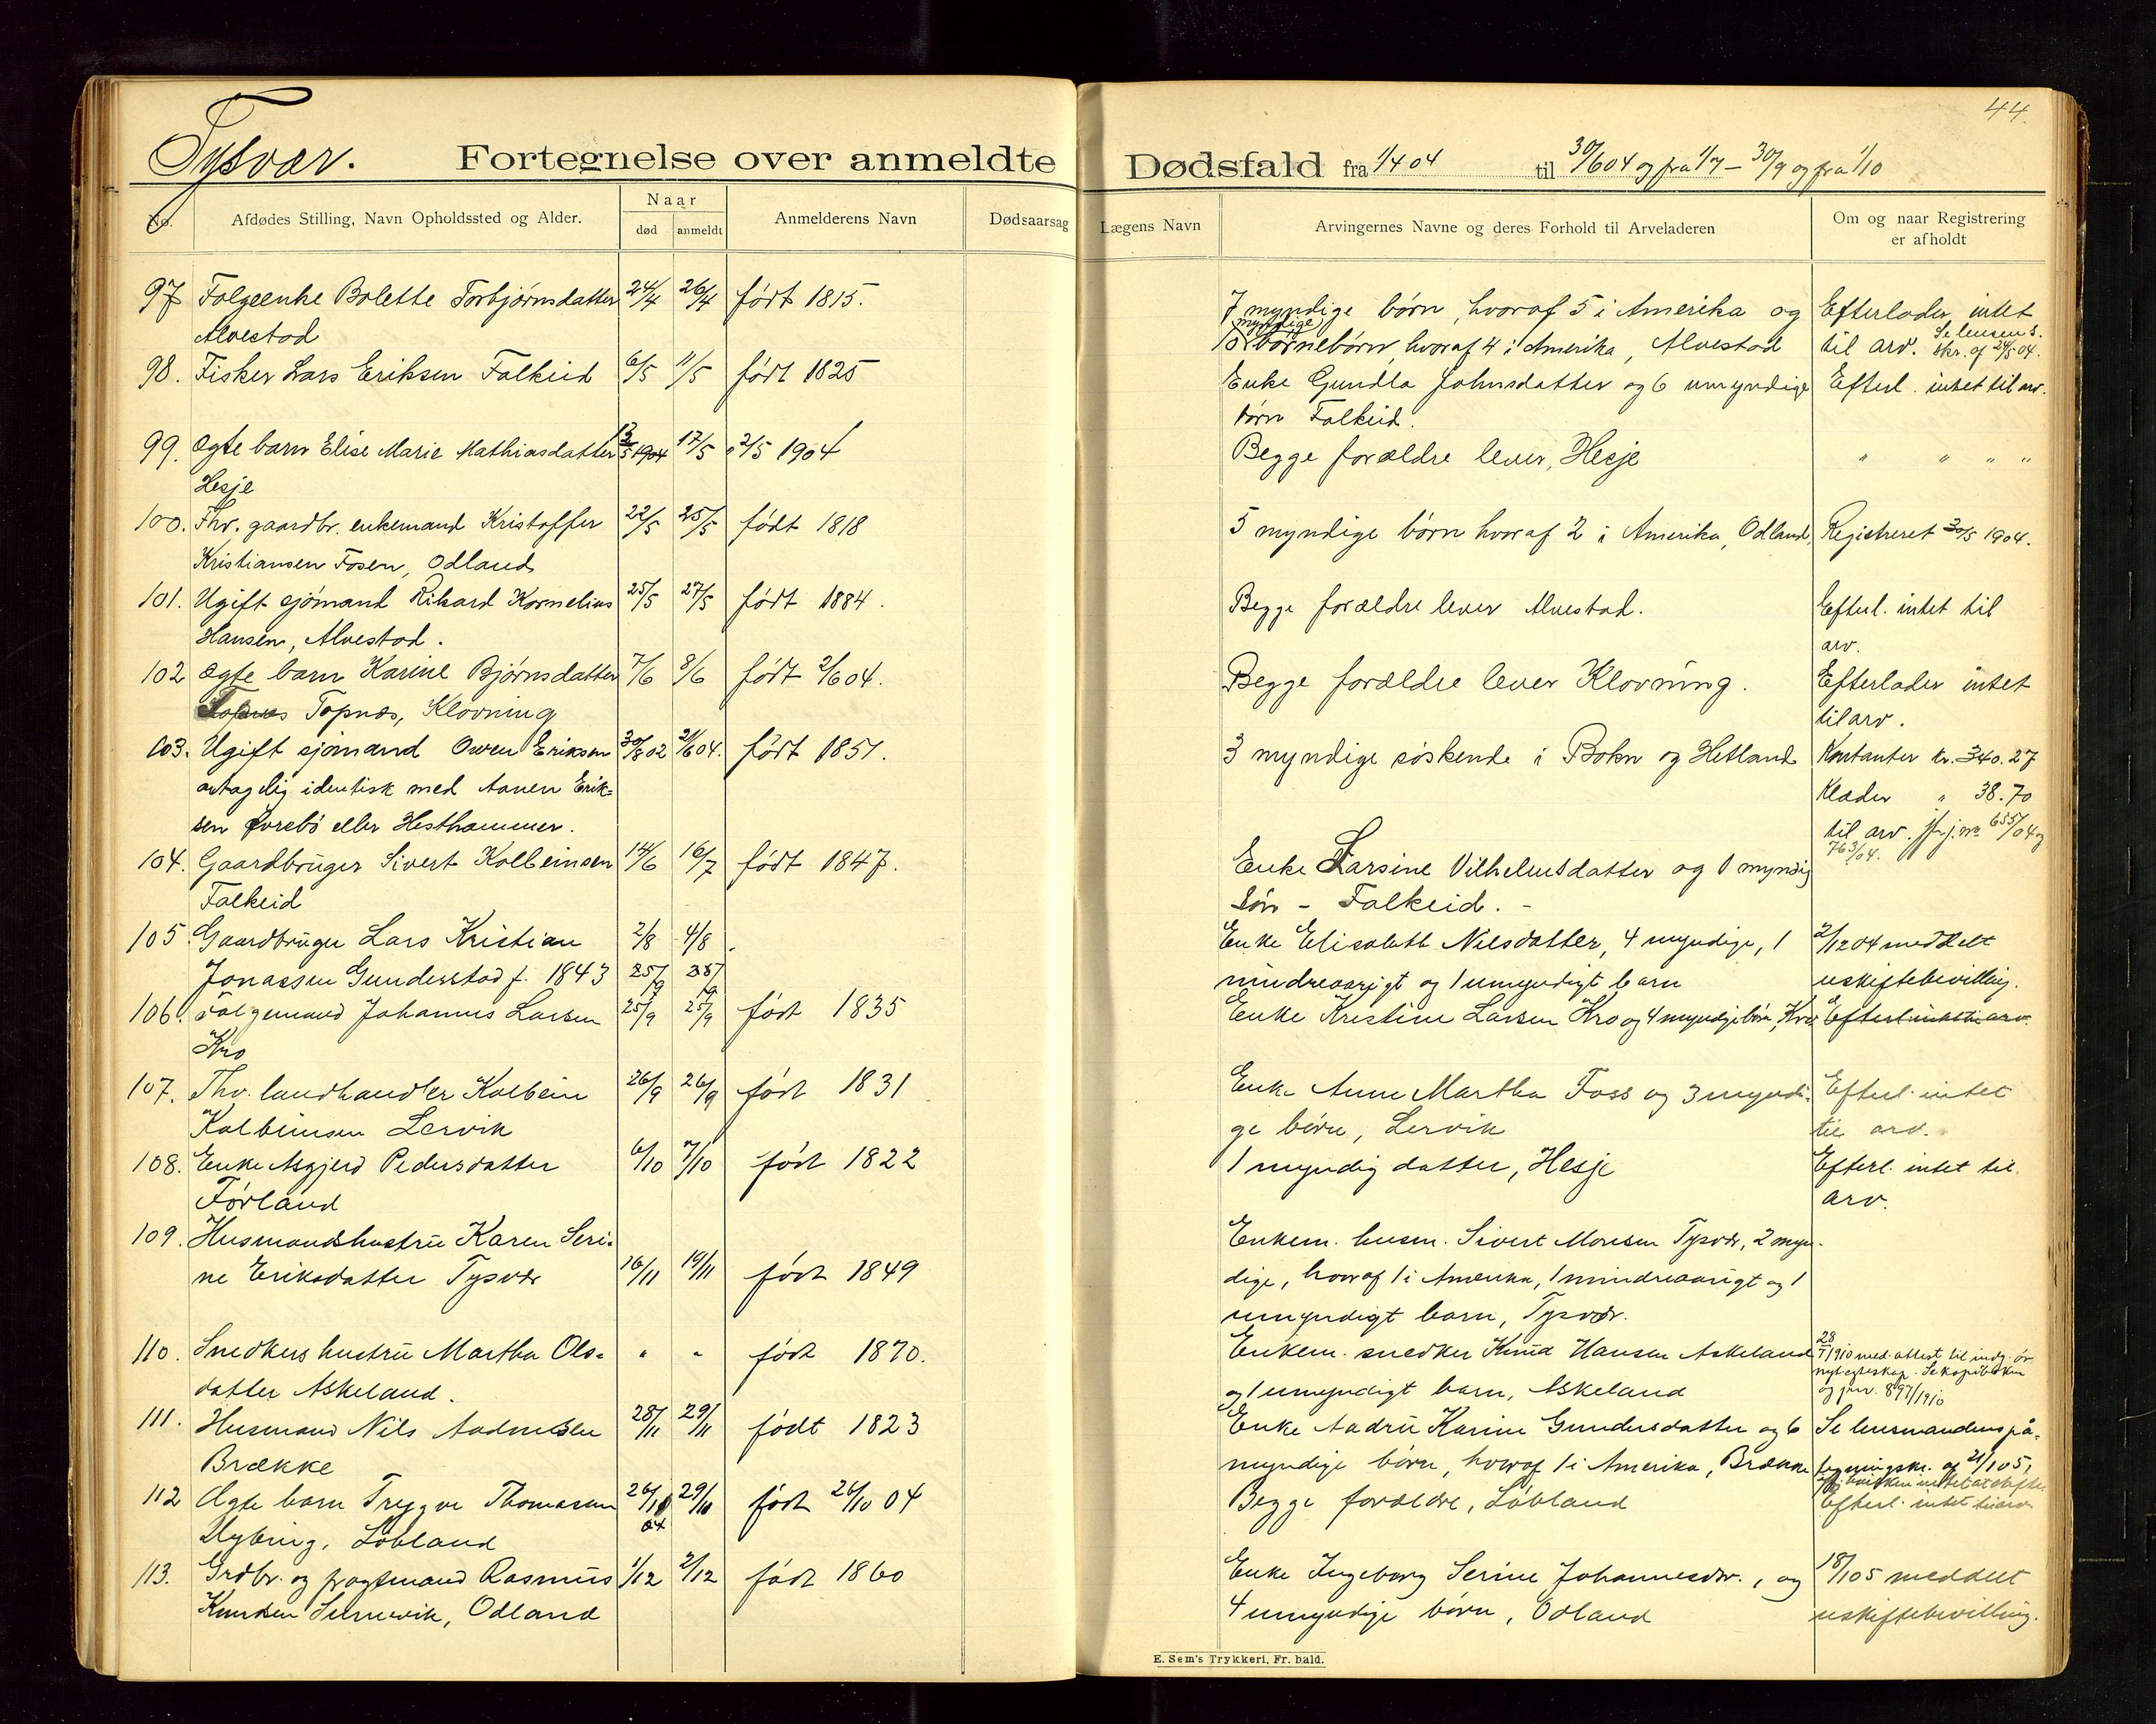 44.
Tysvær. Fortegnelse over anmeldte Dødsfald fra 1/4 04 til 30/6 04 og fra 1/7 – 30/9 og fra 1/10
No. Afdødes Stilling, Navn Opholdssted og Alder. Naar død anmeldt Anmelderens Navn Dødsaarsag Lægens Navn Arvingernes Navne og deres Forhold til Arveladeren Om og naar Registrering er afholdt
97 Folgeenke Bolette Torbjørnsdatter 24/4 26/4 født 1815. 7 myndige børn, hvoraf 5 i Amerika og Efterlader intet
Alvestad myndige børnebørn, hvoraf 4 i Amerika, Alvestad til arv. Se lensm s. skr. af 24/5 04.
98. Fisker Lars Eriksen Falkeid 6/5 11/5 født 1825 Enke Gundla Johnsdatter og 6 umyndige Efterl. intet til arv.
børn Falkeid.
99. Ægte barn Elise Marie Mathiasdatter 13/5 1904 17/5 2/5 1904 Begge forældre lever, Hesje " " " "
Hesje
100. Fhv. gaardbr. enkemand Kristoffer 22/5 25/5 født 1818 5 myndige børn hvoraf 2 i Amerika, Odland, Registreret 30/5 1904.
Kristiansen Fosen, Odland
101. Ugift sjømand Rikard Kornelius 25/5 27/5 født 1884. Begge forældre lever Alvestad. Efterl. intet til
Hansen, Alvestad. arv.
102 Ægte barn Karine Bjørnsdatter 7/6 8/6 født 2/6 04. Begge forældre lever Klovning. Efterlader intet
Topnes Topnæs, Klovning til arv.
103. Ugift sjømand Owen Eriksen 30/8 02 21/6 04. født 1851. 3 myndige søskende i Bokn og Hetland Kontanter kr. 340.27
antagelig identisk med Aanen Erik- Klæder " 38.70
sen Øvrebø eller Hesthammer. til arv. jfr. j. no 655/04 og
763/04.
104. Gaardbruger Sivert Kolbeinsen 14/6 16/7 født 1847. Enke Larsine Vilhelmsdatter og 1 myndig
Falkeid søn – Falkeid. –
105. Gaardbruger Lars Kristian 2/8 4/8 Enke Elisabeth Nilsdatter, 4 myndige, 1 2/12 04 meddelt
Jonassen Gunderstad f. 1843 25/9 25/9 mindreaarigt og 1 umyndigt barn uskiftebevilling.
106. Følgemand Johannes Larsen 25/9 25/9 født 1835 Enke Kristine Larsen Kro og 4 myndige børn, Kro Efterl intet til arv.
Kro
107. Fhv. landhandler Kolbein 26/9 26/9 født 1831 Enke Anne Martha Foss og 3 myndi- Efterl. intet
Kolbeinsen Lervik ge børn, Lervik til arv.
108. Enke Asgjerd Pedersdatter 6/10 7/10 født 1822 1 myndig datter, Hesje Efterl. intet til
Førland arv.
109. Husmandshustru Karen Seri- Enkem. husm. Sivert Monsen Tysvær, 2 myn-
ne Eriksdatter Tysvær 16/11 19/11 født 1849 dige, hvoraf 1 i Amerika, 1 mindreaarigt og 1
umyndigt barn, Tysvær.
110. Snedkers hustru Martha Ols- " " født 1870. Enkem. snedker Knud Hansen Askeland 28/1 1910 med. attest til indg. av
datter Askeland. og 1 umyndigt barn, Askeland nyt egteskap. Se kopibken og jnr. 897/1910
111. Husmand Nils Aadnesen 28/11 29/11 født 1823 Enke Aadru Karine Gundersdatter og 6 Se lensmandens på-
Brække myndige børn, hvoraf 1 i Amerika, Brække tegningskr. af 21/1 05,
112 Ægte barn Trygve Thomasen 26/10 04 29/10 født 26/10 04 Begge forældre, Løbland Efterl. intet til arv
Nybing, Løbland
113. Grdbr. og fragtmand Rasmus 1/12 2/12 født 1860 Enke Ingeborg Serine Johannesdtr., og 18/1 05 meddelt
Knudsen Sunnevik, Odland 4 umyndige børn, Odland uskiftebevilling.
E. Sem's Trykkeri, Fr. hald.